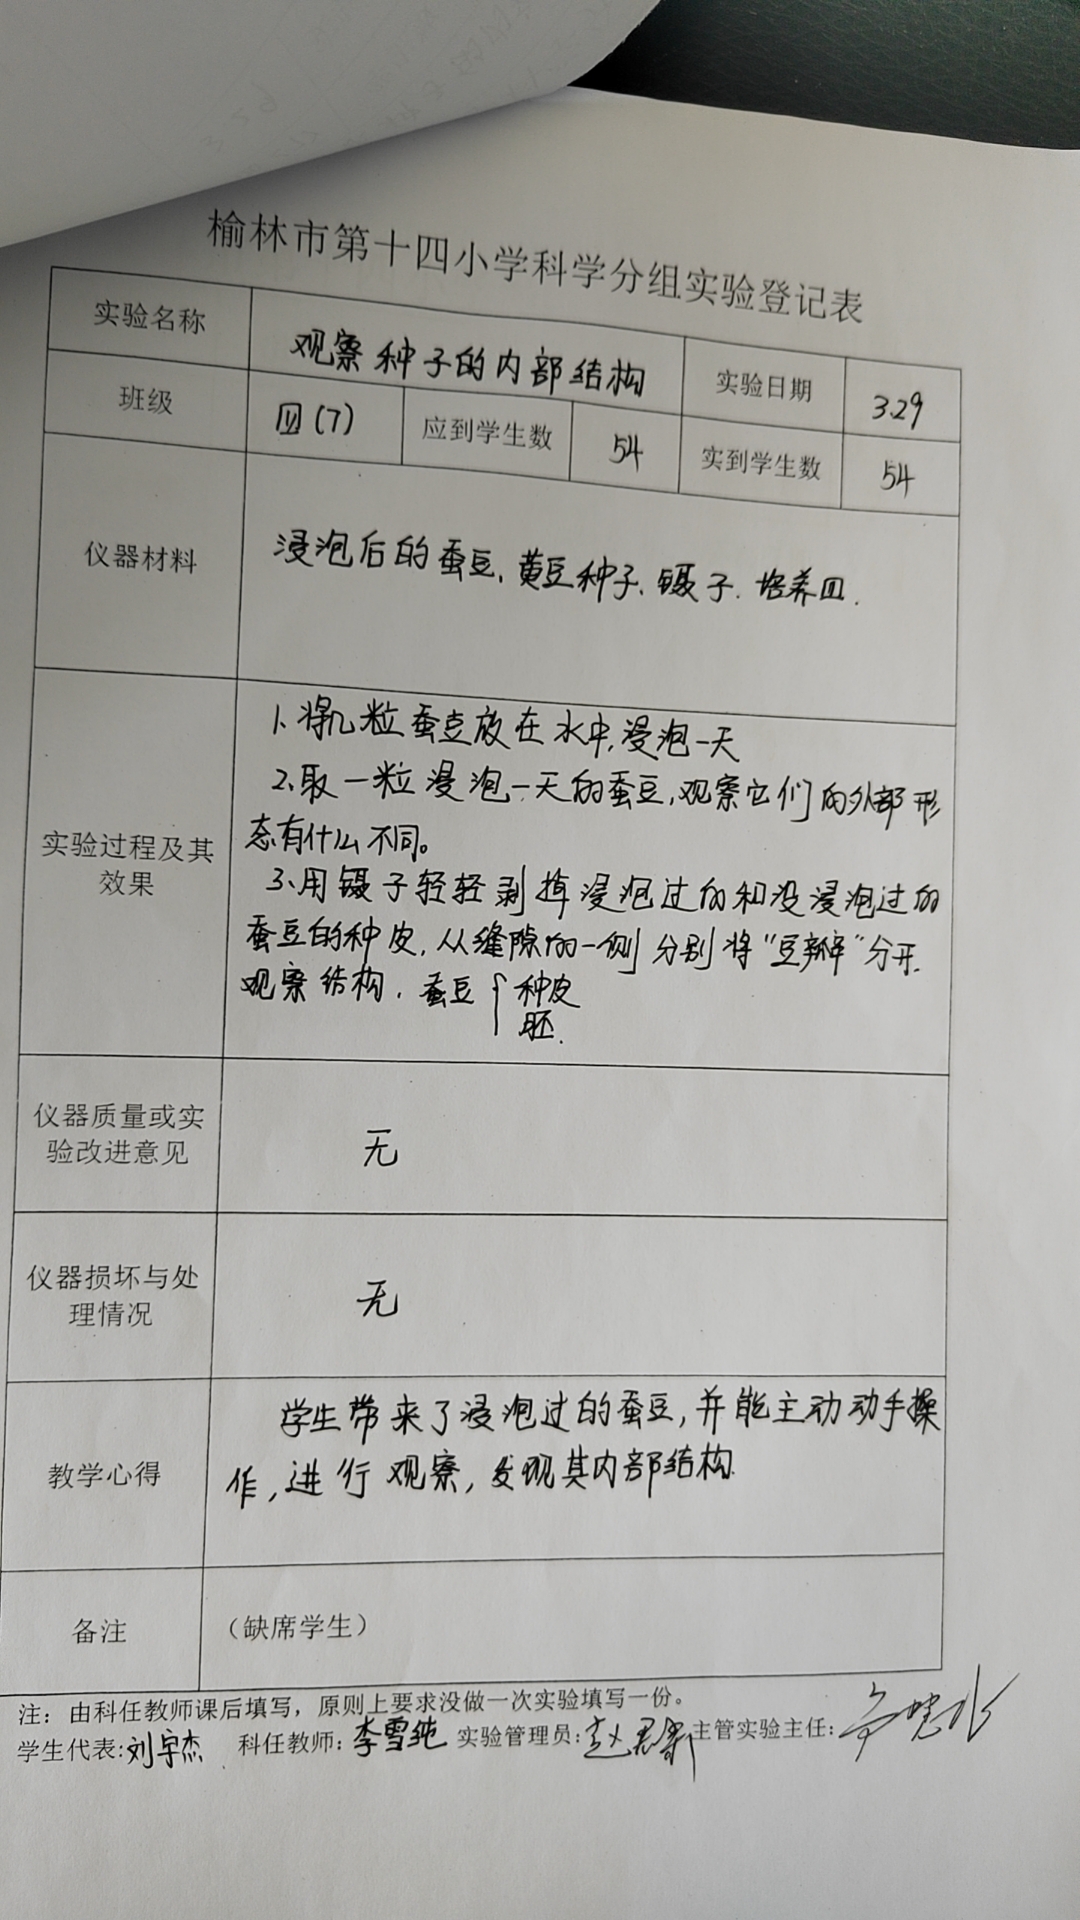 榆林市第十四小学科学分组实验登记表
实验名称 观察种子的内部结构 实验日期 3.29
班级 四(7) 应到学生数 54 实到学生数 54
仪器材料 浸泡后的蚕豆、黄豆种子、镊子、培养皿.
实验过程及其效果
1、将几粒蚕豆放在水中,浸泡一天
2、取一粒浸泡一天的蚕豆,观察它们的外部形
态有什么不同。
3、用镊子轻轻剥掉浸泡过的和没浸泡过的
蚕豆的种皮,从缝隙的一侧分别将“豆瓣”分开.
观察结构.蚕豆{种皮
胚.
仪器质量或实
验改进意见 无
仪器损坏与处
理情况 无
教学心得
学生带来了浸泡过的蚕豆,并能主动动手操
作,进行观察,发现其内部结构.
备注 (缺席学生)
注：由科任教师课后填写，原则上要求没做一次实验填写一份。
学生代表:刘宇杰 科任教师：李雪纯 实验管理员:赵 主管实验主任：